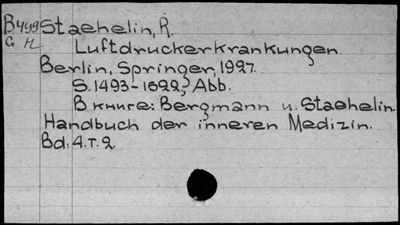 В499 Staehelin, R.
С H Luftdruckerkrankungen.
Berlin, Springer, 1927.
S. 1493-1522, Abb.
В книге: Bergmann u. Staehelin.
Handbuch der inneren Medizin.
Bd. 4. T. 2.